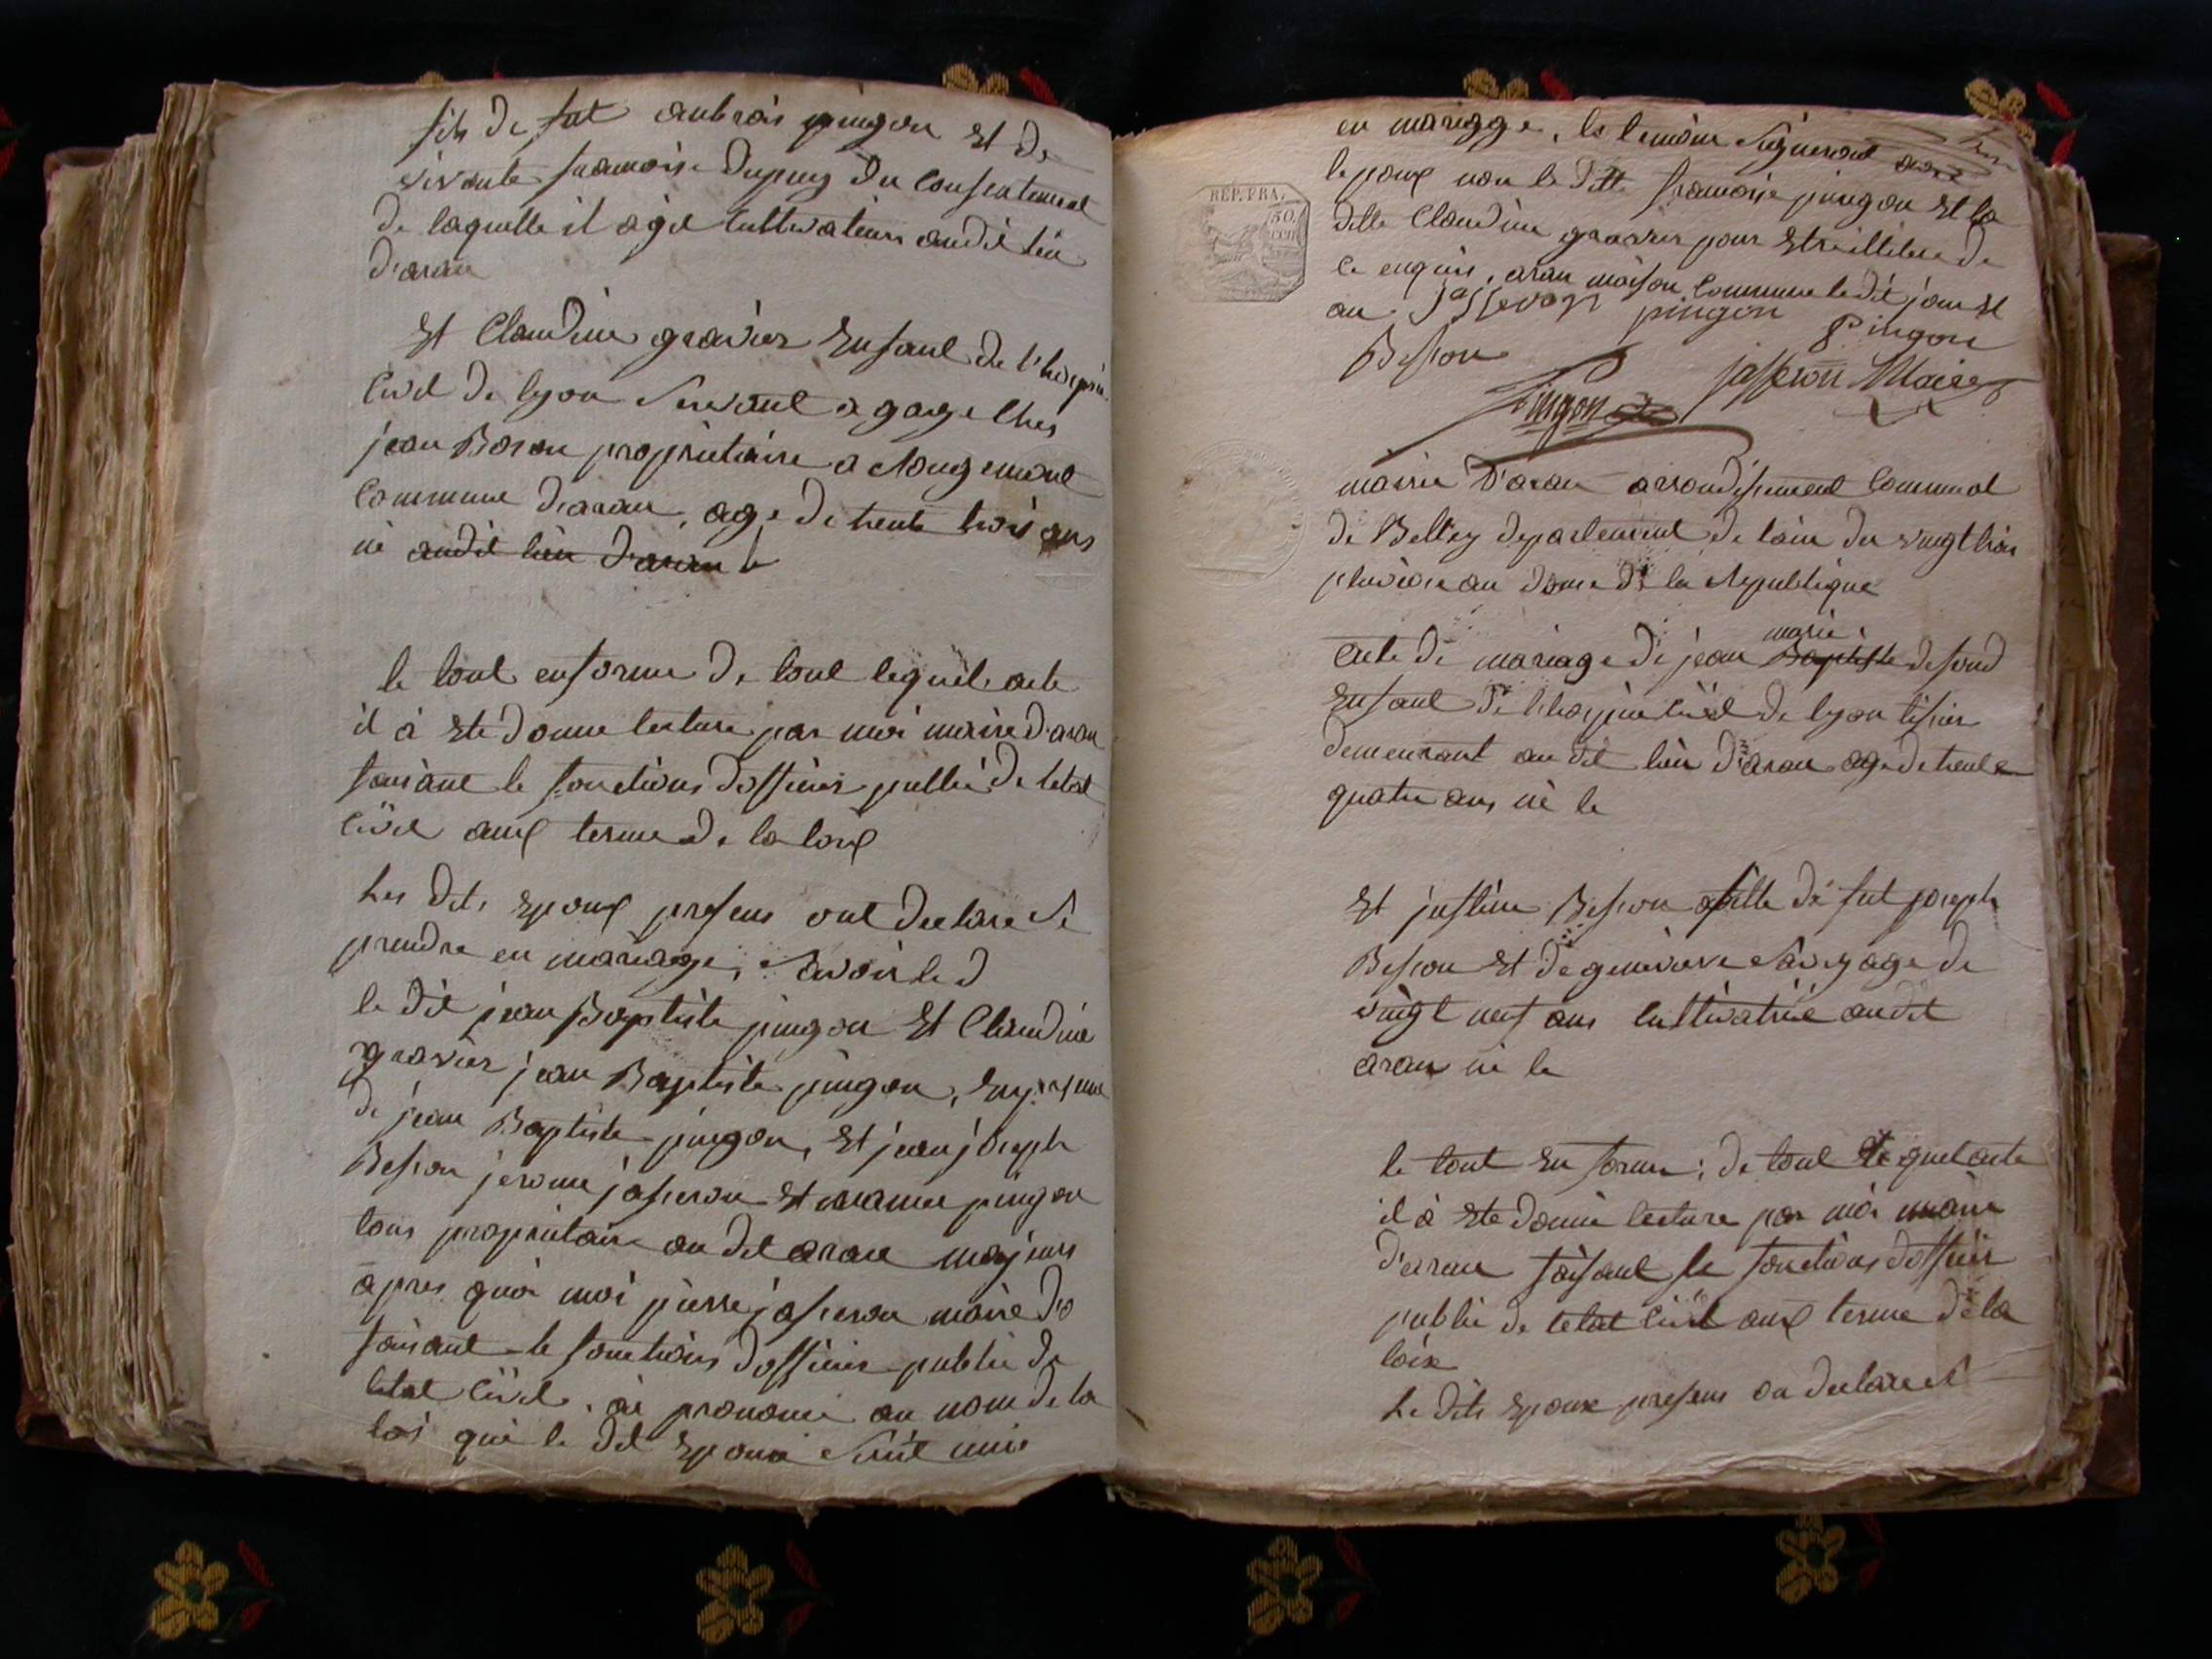 fils de fut anbrois pingon et de
vivante francoise Dupuy du consentement
de laquelle il agit cultivateur audit lieu
d'aran
Et Claudine gravier Enfant de l'hospice
civil de lyon servant a gage ches
jean Boron proprietaire a Rougemont
commune d'aran, age de trente trois ans
né audit lieu d'aran
le tout en forme de tout lequel acte
il à ete donne lecture par moi maire d'aran
faisant le fonctions dofficier public de letat
civil aux terme de la loix
Les dits Epoux presens ont declare se
prendre en mariage, savoir le d
le dit jean Baptiste pingon Et Claudine
gravier jean Baptiste pingon, En presence
de jean Baptiste pingon, Et jean joseph
Besson jerome jasseron Et pingon
tous proprietaire au dit aran majeurs
apres quoi moi pierre jasseron maire d'a
faisant le fonctions dofficier public de
letat civil, ai prononcé au nom de la
loi que le dit Epoux sont unis
en mariage, le temoins signeront avec
REP. FRA.
50.
CEN
lepoux non la ditte francoise pingon Et la
ditte Claudine gravier pour Etre illitere de
ce enquis, aran maison commune ledit jour Et
an Jasseron pingon Pingon
Besson
Pingon jasseron Maire
mairie D'aran arrondissement communal
de Belley departement de lain du vingt trois
pluviose an douze de la Republique
acte de mariage de jean Baptiste marie defond
Enfant de l'hospice civil de lyon tissier
demeurant au dit lieu d'aran age de trente
quatre ans né le
Et justine Besson fille de fut joseph
Besson Et de genevieve savey age de
vingt neuf ans cultivatrice audit
aran né le
le tout En forme; de tout lequel acte
il à ete donné lecture par moi maire
d'aran faisant le fonctions dofficier
public de letat civil aux terme de la
loix
Le dits Epoux presens on declare s